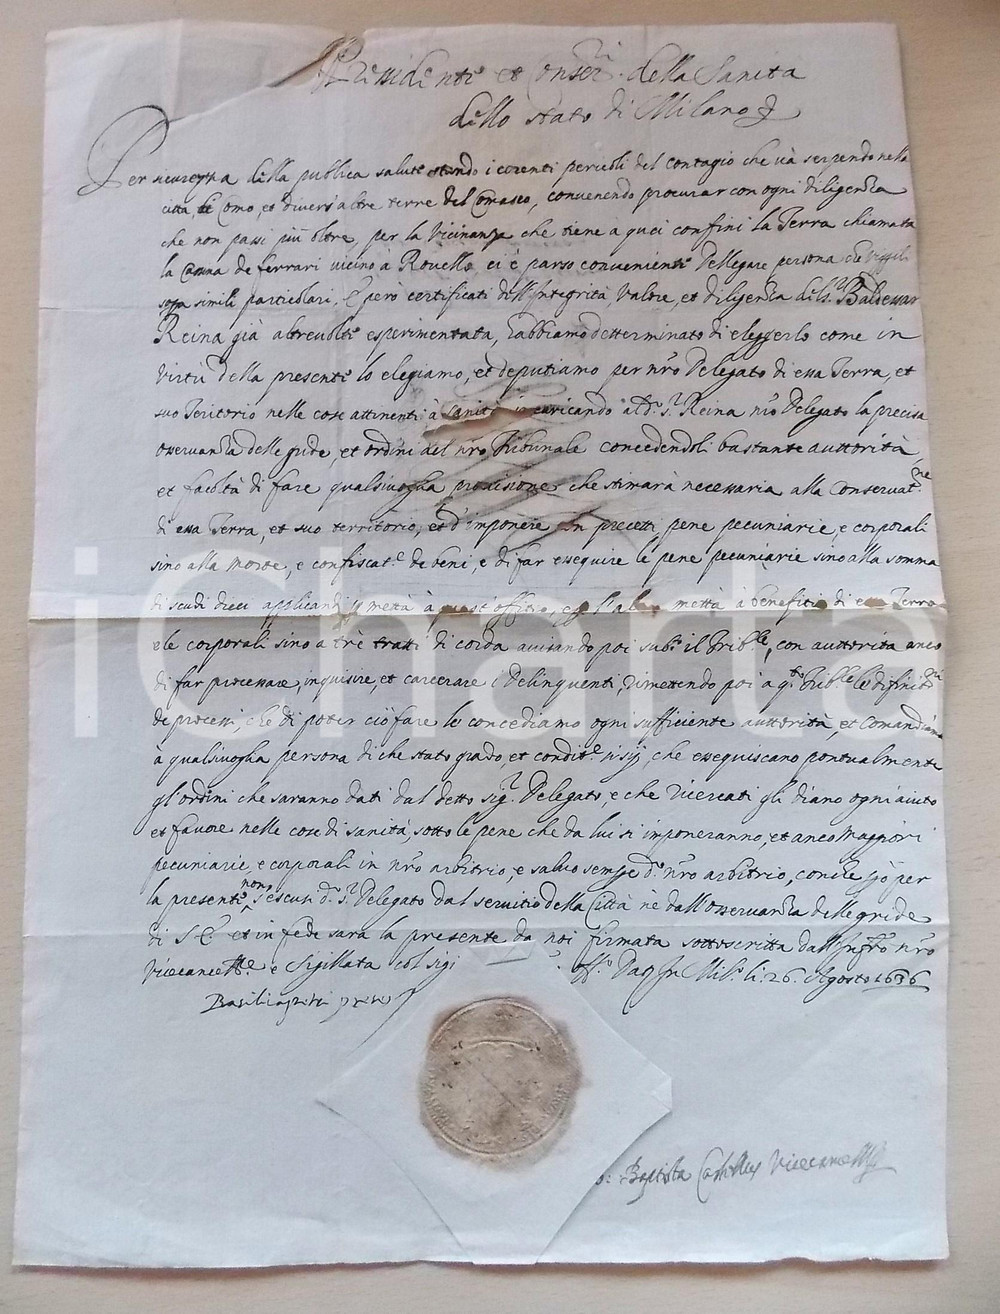 Pressidente et Conser.ri della Sanita
dello stato di Milano &
Per sicurezza della publica salute stando i correnti pericoli del contagio che và serpendo nella
città, de Como, et diversi altre terre del Comasco, convenendo procurar con ogni diligenza
che non passi più oltre, per la vicinanza che tiene a quei confini la Terra chiamata
la Cassina de ferrari vicino à Rovello, ci è parso conveniente dellegare persona che vigili
sopra simili particolari, E però certificati dell'Integrità Valore, et diligenza del s.r Baldessar
Reina già altrevolte esperimentata, habbiamo determinato di eleggerlo come in
virtù della presente lo elegiamo, et deputiamo per nr̃o Delegato di essa Terra, et
suo Teritorio nelle cose attinenti à sanità incaricando al d.o s.r Reina nr̃o Delegato la precisa
osservanza delle gride, et ordini del nr̃o Tribunale concedendoli bastante auttorità
et facoltà di fare qualsivoglia provisione che stimarà necessaria alla Conservat.ne
di essa Terra, et suo territorio, et d'imponere in precetti pene pecuniarie, e corporali
sino alla morte, e confiscat.e de beni, e di far essequire le pene pecuniarie sino alla somma
di scudi dieci applicandi p metà à quest'offitio, e p l'altra mettà à benefitio di essa Terra
e le corporali sino a trè tratti di corda avisando poi sub.o il Trib.le, con auttorità anco
di far processare, inquisire, et carcerare i delinquenti, rimettendo poi a q.to Trib.le le difinit.ni
de processi, che di poter ciò fare le concediamo ogni sufficiente auttorità, et Comandiamo
à qualsivoglia persona di che stato grado, et condit.e si sij, che essequiscano pontualmente
gl'ordini che saranno dati dal detto sig.r Delegato, e che ricercati gli diano ogni aiuto
et favore nelle cose di sanità, sotto le pene che da lui si imponeranno, et anco maggiori
pecuniarie, e corporali in nr̃o arbitrio, e salvo sempre d.o nr̃o arbitrio, con che però per
la presente non s'escusi d.o s.r Delegato dal servitio della Città nè dall'osservanza delle gride
di S. E. et in fede sarà la presente da noi firmata sottoscritta dall'Infr̃o nr̃o
Vicecancell.e e Sigillata col sigi Mil.o li. 26. Agosto 1636
Baptista Vicecancell.